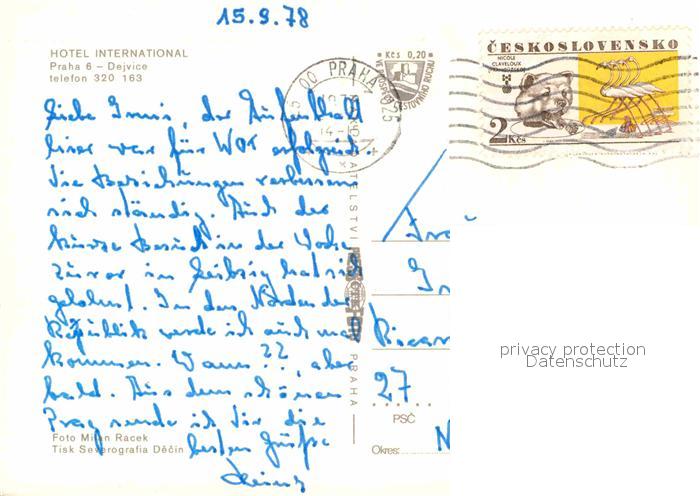 15.9.78
HOTEL INTERNATIONAL
Praha 6 – Dejvice
telefon 320 163
Liebe Irmi, der Aufenthalt
hier war für WOK erfolgreich.
Die Beziehungen verbessern
sich ständig. Auch der
kurze Besuch in der Woche
zuvor in Leipzig hat sich
gelohnt. In den Norden der
Republik werde ich auch mal
kommen. Wann??, aber
bald. Aus dem schönen
Prag sende ich Dir die
besten Grüße
Heinz
Foto Milan Racek
Tisk Severografia Děčín
Kčs 0,20
PRAHA
ČESKOSLOVENSKO
NICOLE
CLAVELOUX
2 Kčs
PRAHA
27
PSČ
Okres: N
privacy protection
Datenschutz